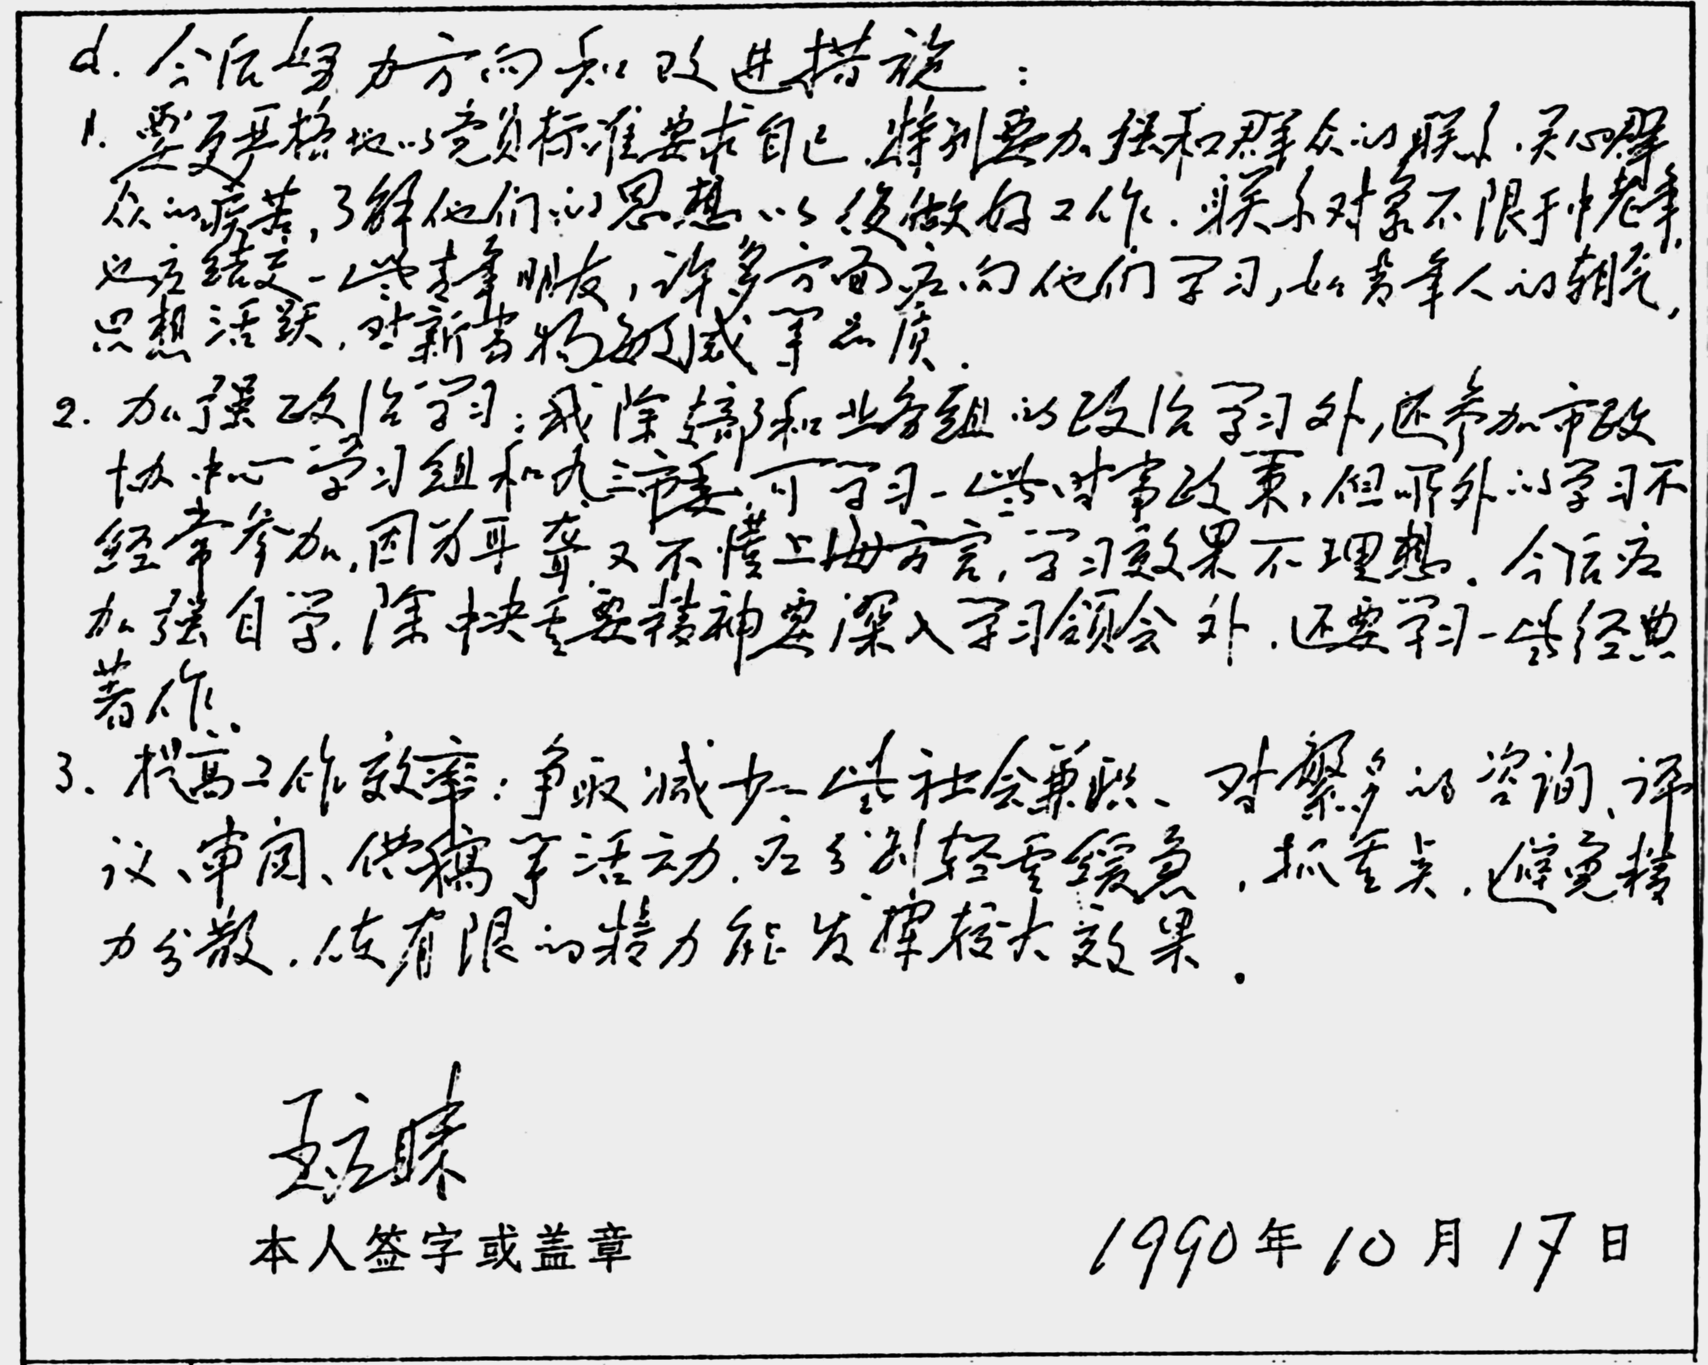 d. 今后努力方向和改进措施:
1. 要更严格地以党员标准要求自己.特别要加强和群众的联系.关心群
众的疾苦,了解他们的思想以後做好工作.联系对象不限于中老年,
也应结交一些青年朋友,许多方面应向他们学习,如青年人的朝气,
思想活跃.对新事物敏感等品质.
2. 加强政治学习:我除支部和业务组的政治学习外,还参加市政
协中心学习组和九三市委,可学习一些时事政策,但所外的学习不
经常参加.因为耳聋又不懂上海方言,学习效果不理想.今后应
加强自学.除中央重要精神要深入学习领会外.还要学习一些经典
著作.
3. 提高工作效率:争取减少一些社会兼职、对繁多的咨询、评
议、审阅、供稿等活动.应分别轻重缓急,抓重点.避免精
力分散.使有限的精力能发挥较大效果.
王应睐
本人签字或盖章 1990年10月17日